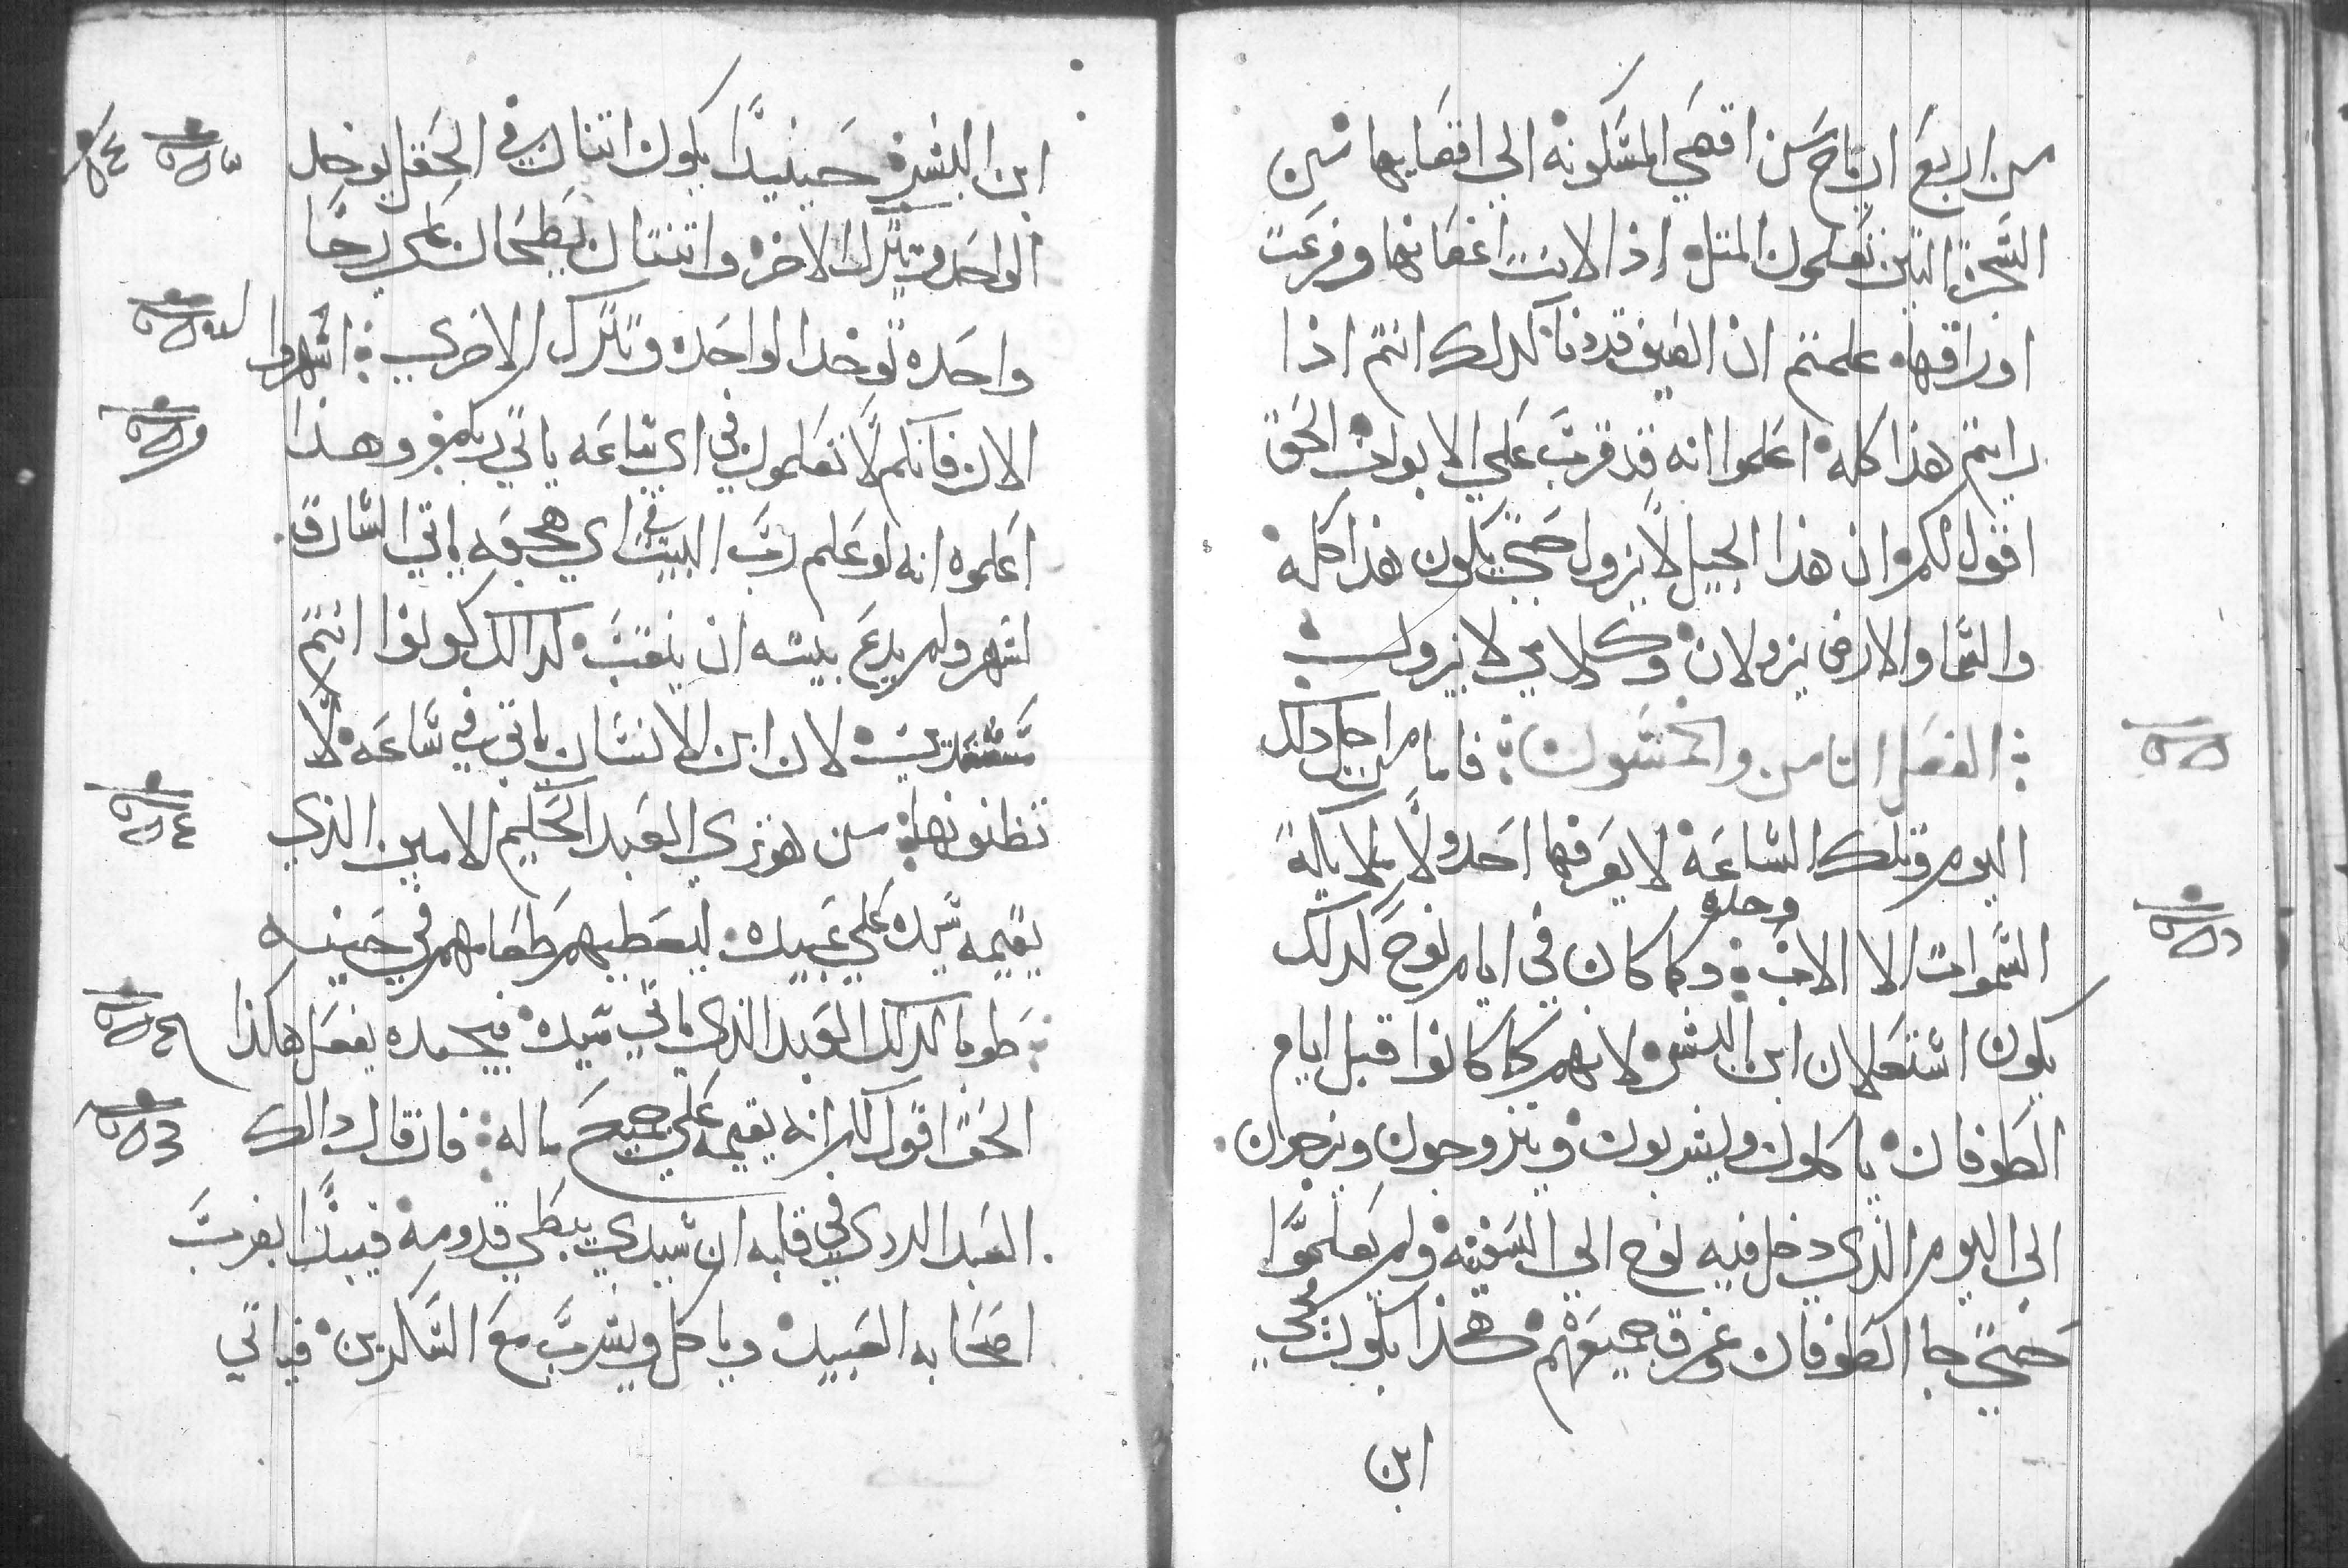 من اربع ارياح من اقصي المسكونه الي اقصايها من
الشجرة التين تعلمون المتل اذا لانت اغصانها وفرعت
اوراقها علمتم ان الصيف قد دنا كدلك انتم اذا
رايتم هذا كله اعلموا انه قد قرب علي الابواب الحق
اقول لكم ان هذا الجيل لا يزول حتي يكون هذا كله
والسما والارض يزولان وكلامي لا يزول
الفصل الثامن والخمسون فاما من اجل دلك
اليوم وتلك الساعه لا يعرفها احد ولا ملايكة
السموات الا الاب وحده وكما كان في ايام نوح كدلك
يكون استعلان ابن البشر لانهم كما كانوا قبل ايام
الطوفان ياكلون ويشربون ويتزوجون ويزوجون
الى اليوم الذي دخل فيه نوح الي السفينه ولم يعلموا
حتي جا الطوفان وغرق جميعهم هكذا يكون مجي
ابن
ابن البشر حينيدا يكون اتنان في الحقل يوخد
الواحد ويترك الاخر واتنتان يطحنان علي رحا
واحده توخد الواحده وتترك الاخري اسهروا
الان فانكم لا تعلمون في اي ساعه ياتي ربكم وهذا
اعلموه انه لو علم رب البيت في اي هجعه ياتي السارق
لسهر ولم يدع بيته ان ينقب كدالك كونوا انتم
مستعدين لان ابن الانسان ياتي في ساعه لا
تظنونها من هو تري العبد الحكيم الامين الذي
يقيمه سيده علي عبيده ليعطيهم طعامهم في حينه
طوبا لدلك العبد الذي ياتي سيده فيجده يفعل هاكذا
الحق اقول لكم انه يقيمه علي جميع ماله فان قال دالك
العبد الردي في قلبه ان سيدي يبطي قدومه فيبدا يضرب
اصحابه العبيد وياكل ويشرب مع السكيرين فياتي